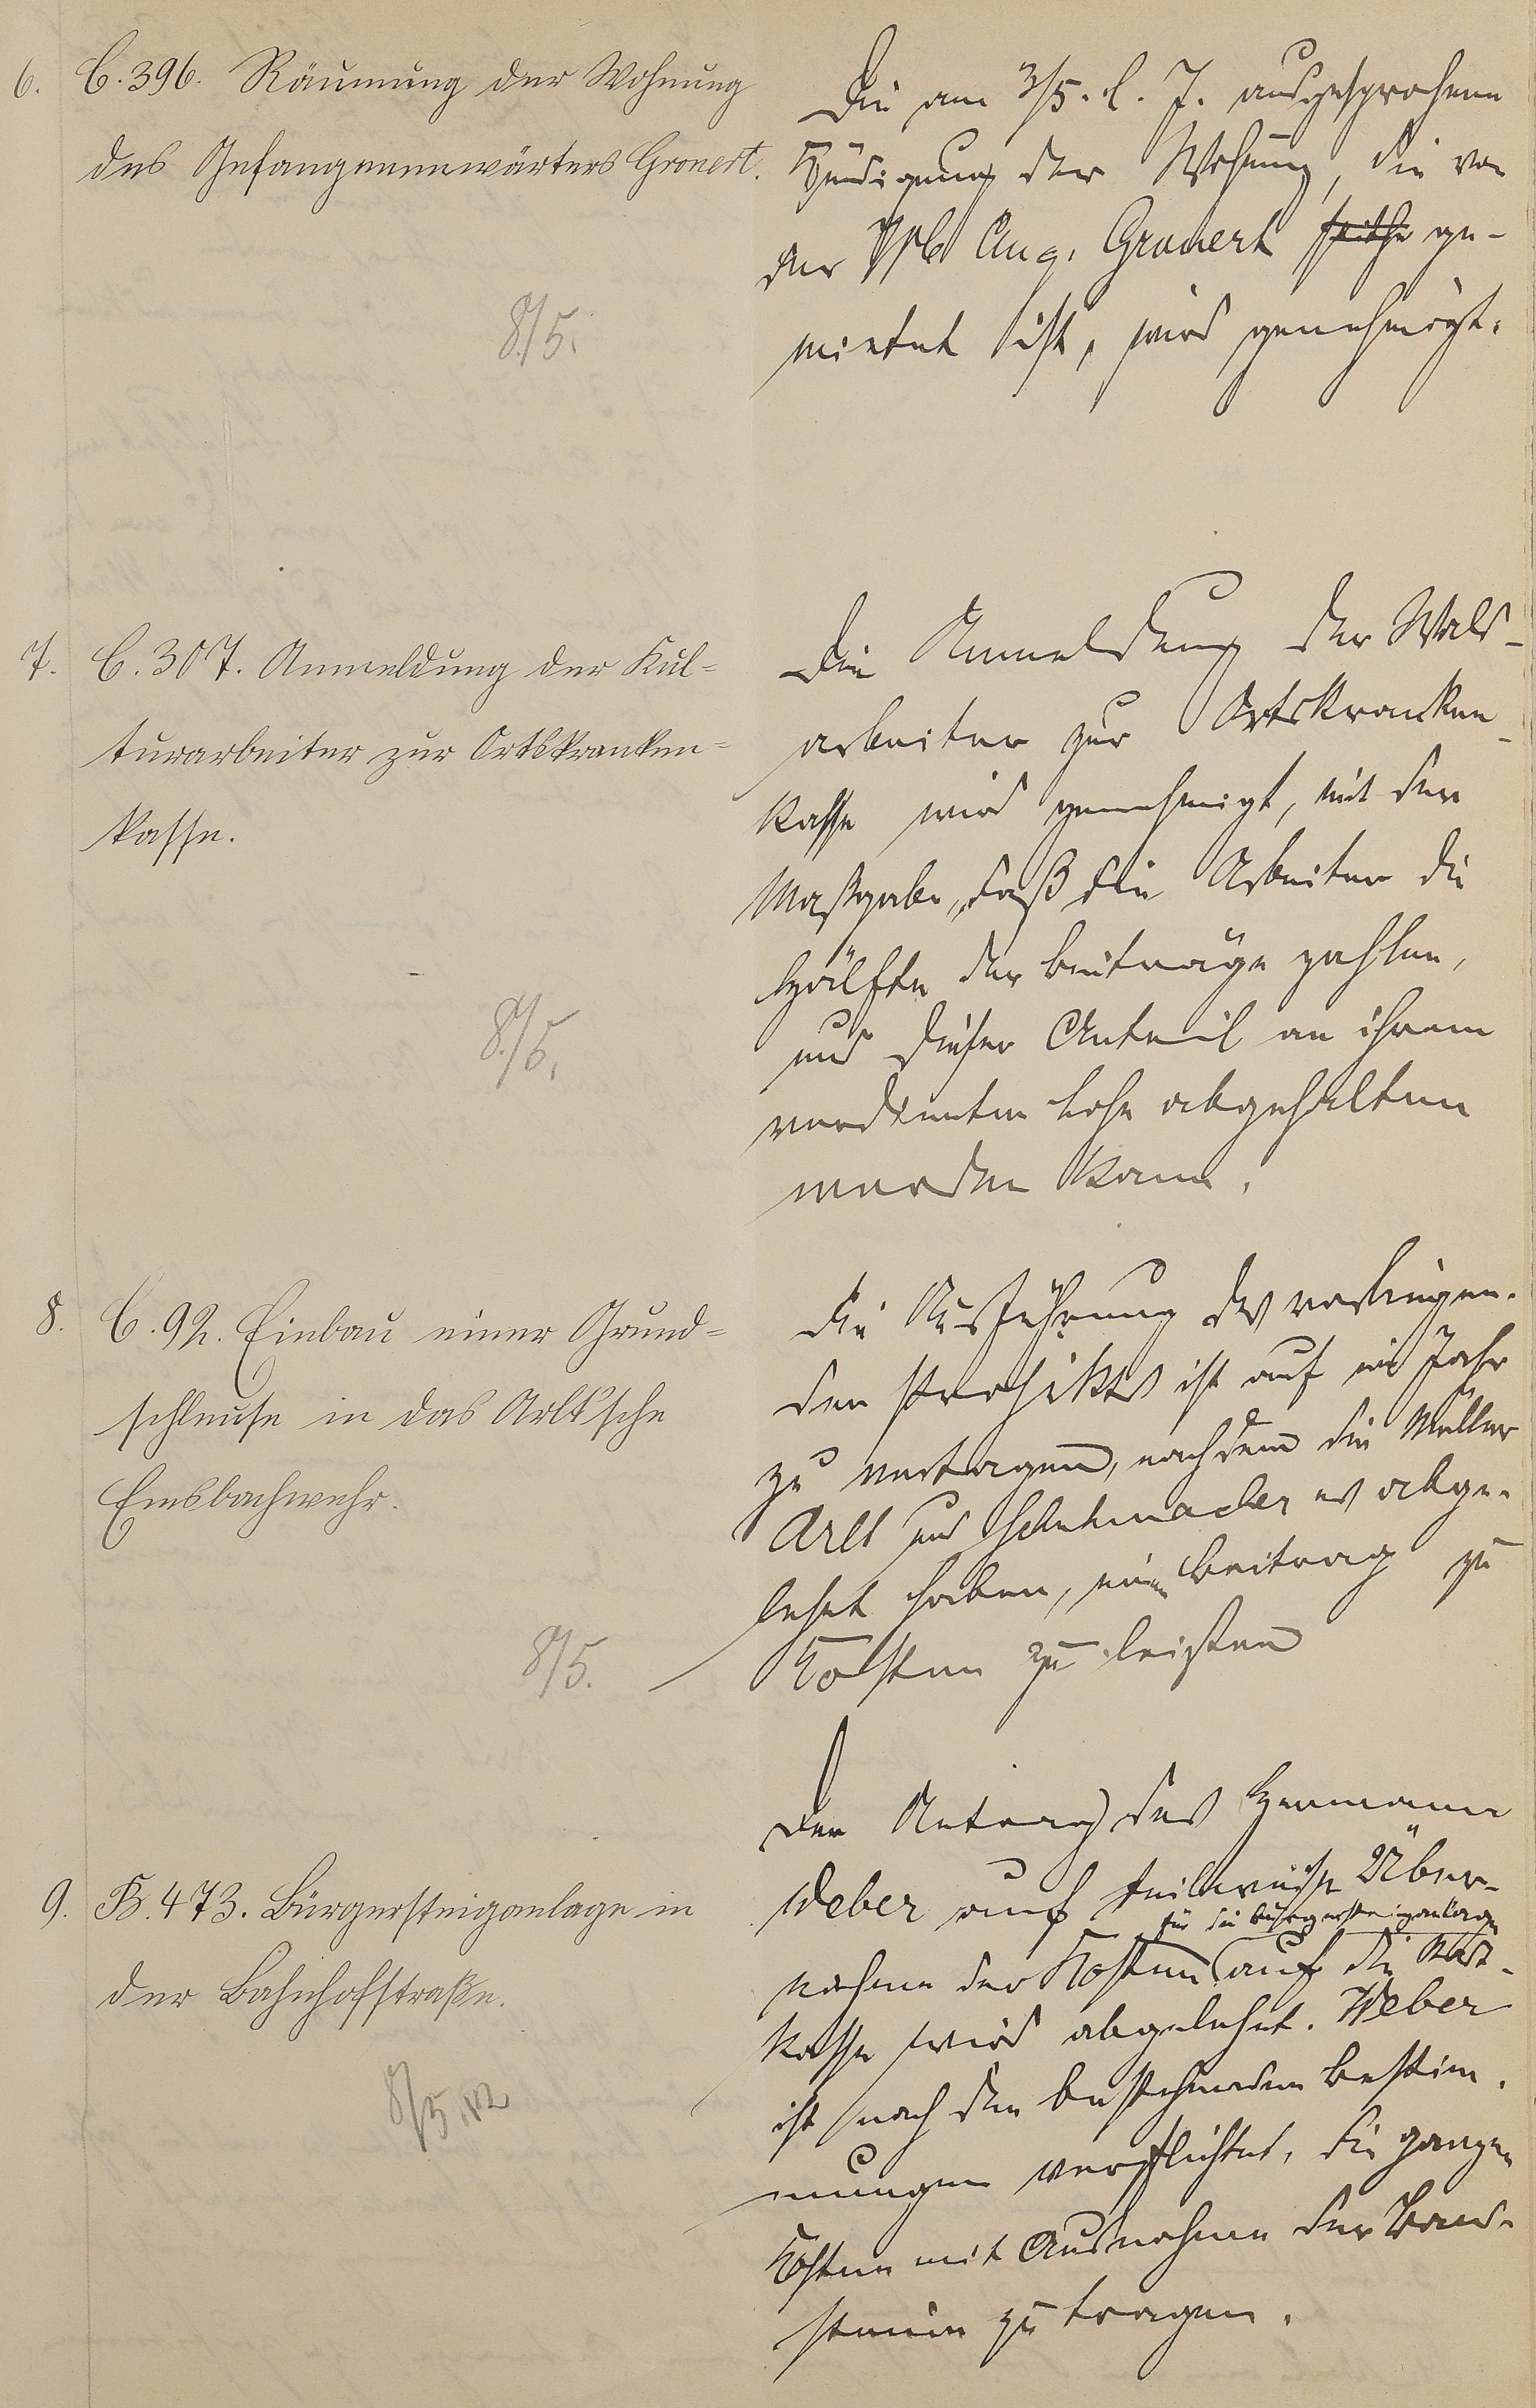 6. C. 396. Räumung der Wohnung
des Gefangenenwärters Gronert.
Die am 3/5. l. J. ausgesprochene
Kündigung der Wohnung, die von
der Aug. Gronert ge-
mietet ist, wird genehmigt.
8./5.
7. C. 307. Anmeldung der Kul-
turarbeiter zur Ortskranken-
kasse.
Die Anmeldung der Wald-
arbeiter zur Ortskranken-
kasse wird genehmigt, mit der
Maßgabe, daß die Arbeiter die
Hälfte der Beiträge zahlen,
und dieser Anteil an ihrem
verdienten Lohn abgehalten
werden kann.
8./5.
8. C. 92. Einbau einer Grund-
schleuse in das Arlt'sche
Emsbachwehr.
Die Ausführung des vorliegen-
den Projektes ist auf ein Jahr
zu vertagen, nachdem die Müller
Arlt und Schuhmacher es abge-
lehnt haben, einen Beitrag zu
Kosten zu leisten
8/5.
9. B. 473. Bürgersteiganlage in
der Bahnhofstraße.
Der Antrag des Hermann
Weber auf teilweise Über-
für die Bürgersteiganlage
nahme der Kosten auf die Stadt-
kasse wird abgelehnt. Weber
ist nach den bestehenden Bestim-
mungen verpflichtet, die ganzen
Kosten mit Ausnahme der Band-
steine zu tragen.
8/5. 12